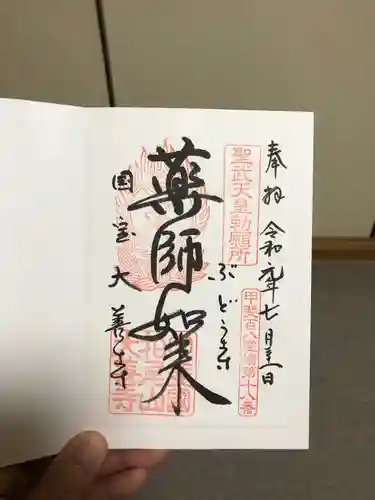 奉拝 令和元年七月
聖武天皇勅願所
甲斐百八霊場第十八番
ぶどう寺
薬師如来
国宝大善寺